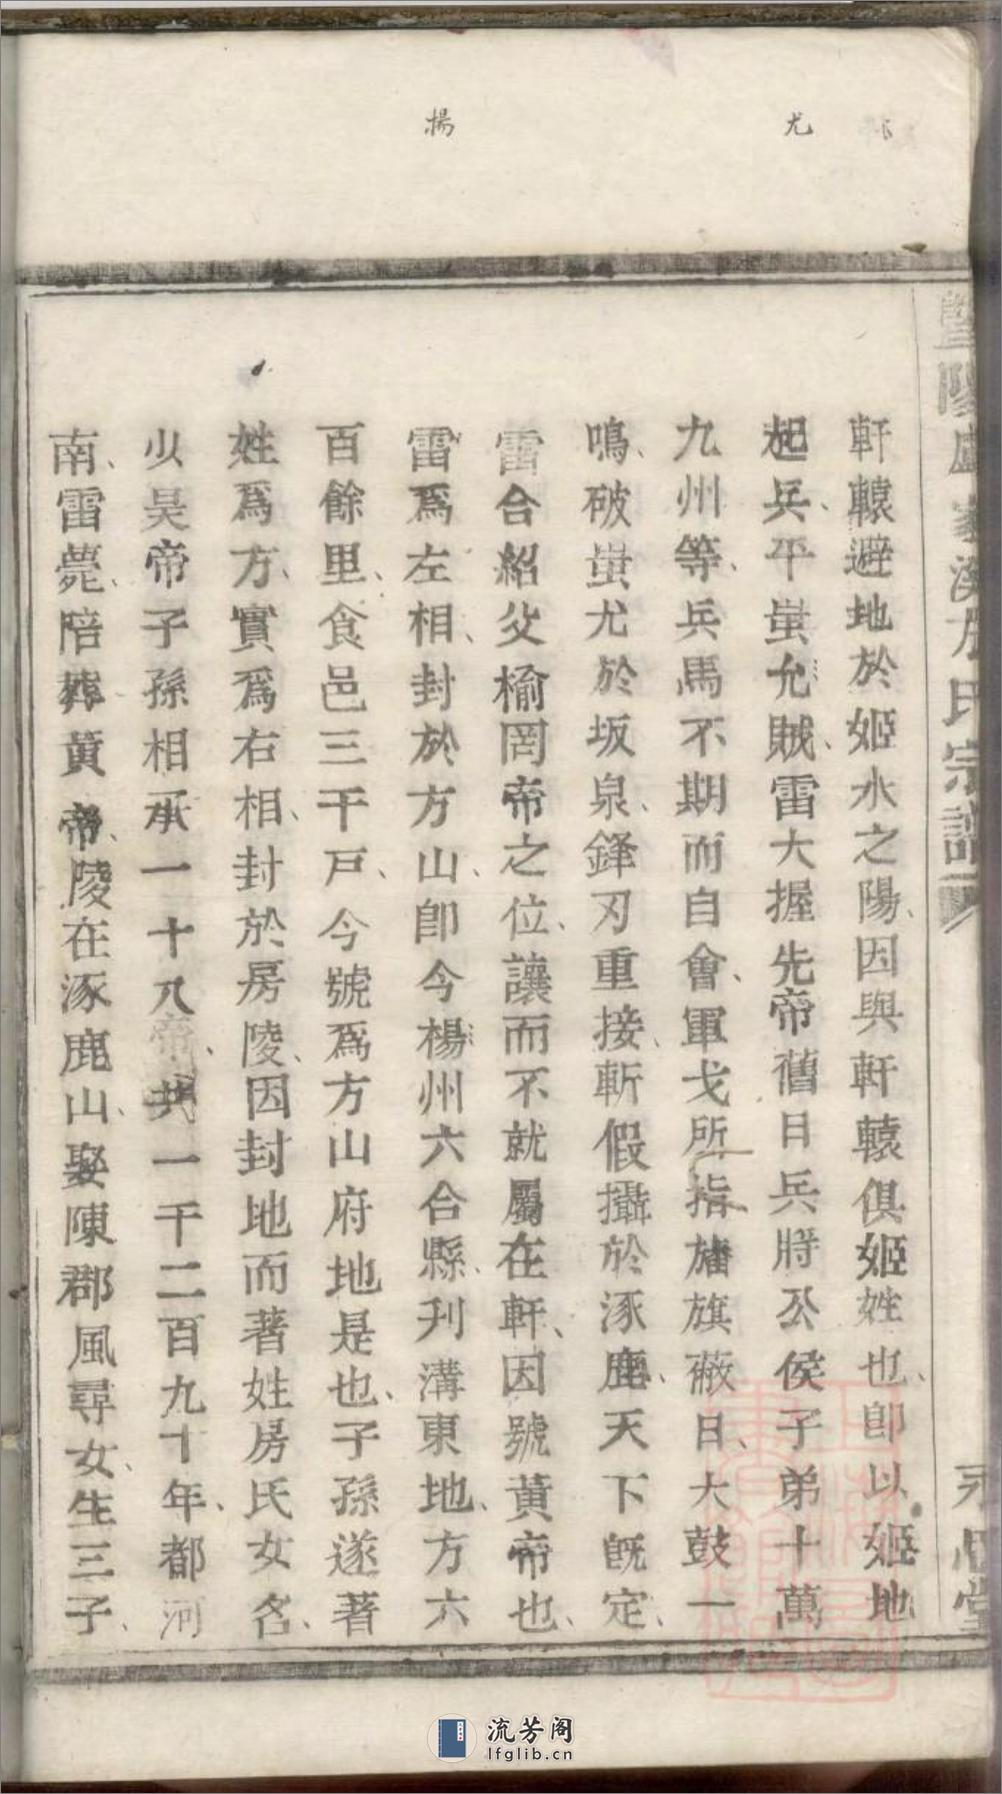 尤
揚
軒轅避地於姬水之陽、因與軒轅俱姬姓也、卽以姬地
起兵平蚩尤賊、雷大握先帝舊日兵將公侯子弟十萬
九州等、兵馬不期而自會、軍戈所指旛旗蔽日、大鼓一
鳴、破蚩尤於坂泉、鋒刃重接、斬假攝於涿鹿、天下旣定、
雷合紹父榆罔帝之位、讓而不就屬在軒、因號黃帝也、
雷爲左相、封於方山、卽今楊州六合縣、刋溝東地、方六
百餘里、食邑三千戸、今號爲方山府地是也、子孫遂著
姓爲方、實爲右相、封於房陵、因封地而著姓房氏女名、
吴帝子孫相承一十八帝、共一千二百九十年、都河
南、雷薨、陪葬黃帝、陵在涿鹿山、娶陳郡風尋女、生三子、
暨陽 家溪方氏宗譜
永 堂
流芳阁
lfglib.cn